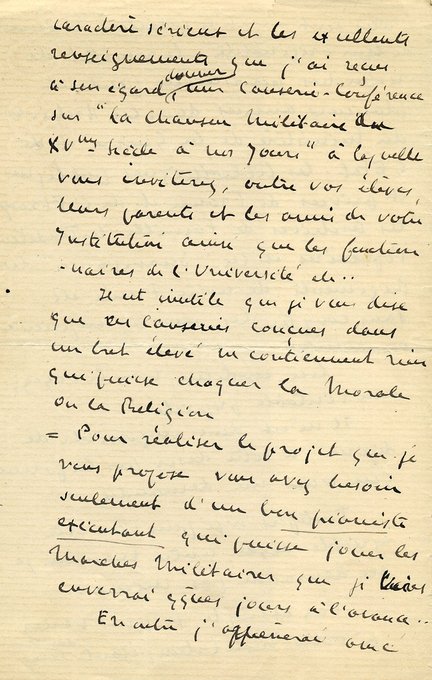 caractère sérieux et les excellents
renseignements que j'ai reçus
à son égard, donner une Causerie-Conférence
sur "La Chanson Militaire du
XVme Siècle à nos Jours" à laquelle
vous inviterez, outre vos élèves,
leurs parents et les amis de votre
Institution ainsi que les fonction
-naires de l'Université etc..
Il est inutile que je vous dise
que ces Causeries conçues dans
un but élevé ne contiennent rien
qui puisse choquer la Morale
ou la Religion
= Pour réaliser le projet que je
vous propose vous avez besoin
seulement d'un bon pianiste
exécutant qui puisse jouer les
Marches Militaires que je
enverrai qques jours à l'avance..
En outre j'apporterai avec